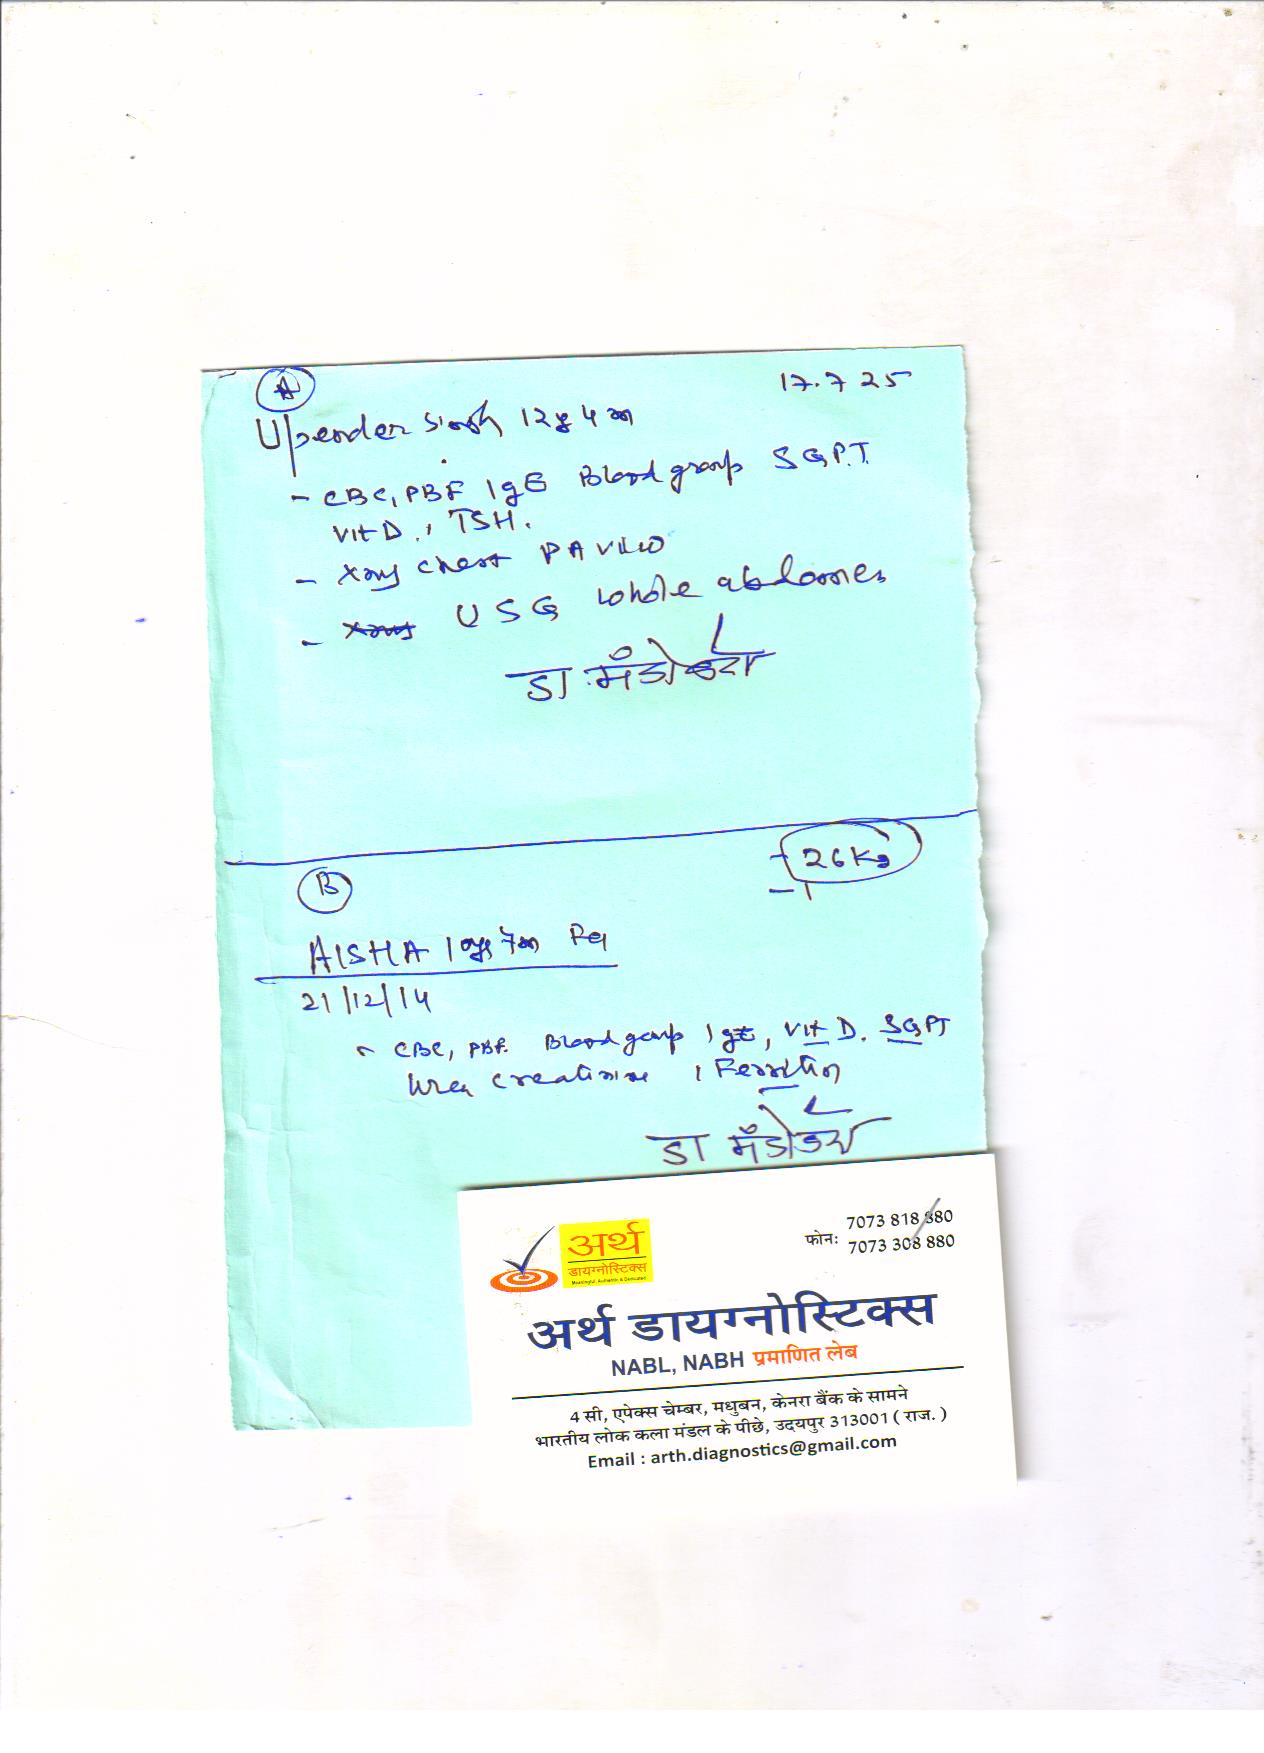 A
17.7 25
Upender Singh 12y 4m
- CBC, PBF IgE Blood group S.G.P.T.
Vit D., TSH.
- Xray chest PA view
- Xray USG whole abdomen
डा. मंडोवरा
26 Kg
B
AISHA 10y 7m
21/12/14
CBC, PBF. Blood group IgE, Vit D. SGPT
Urea Creatinine, Ferritin
डा मंडोवरा
अर्थ
डायग्नोस्टिक्स
Meaningful, Authentic & Dedicated
फोन: 7073 818 880
7073 308 880
अर्थ डायग्नोस्टिक्स
NABL, NABH प्रमाणित लेब
4 सी, एपेक्स चेम्बर, मधुबन, केनरा बैंक के सामने
भारतीय लोक कला मंडल के पीछे, उदयपुर 313001 ( राज. )
Email : arth.diagnostics@gmail.com